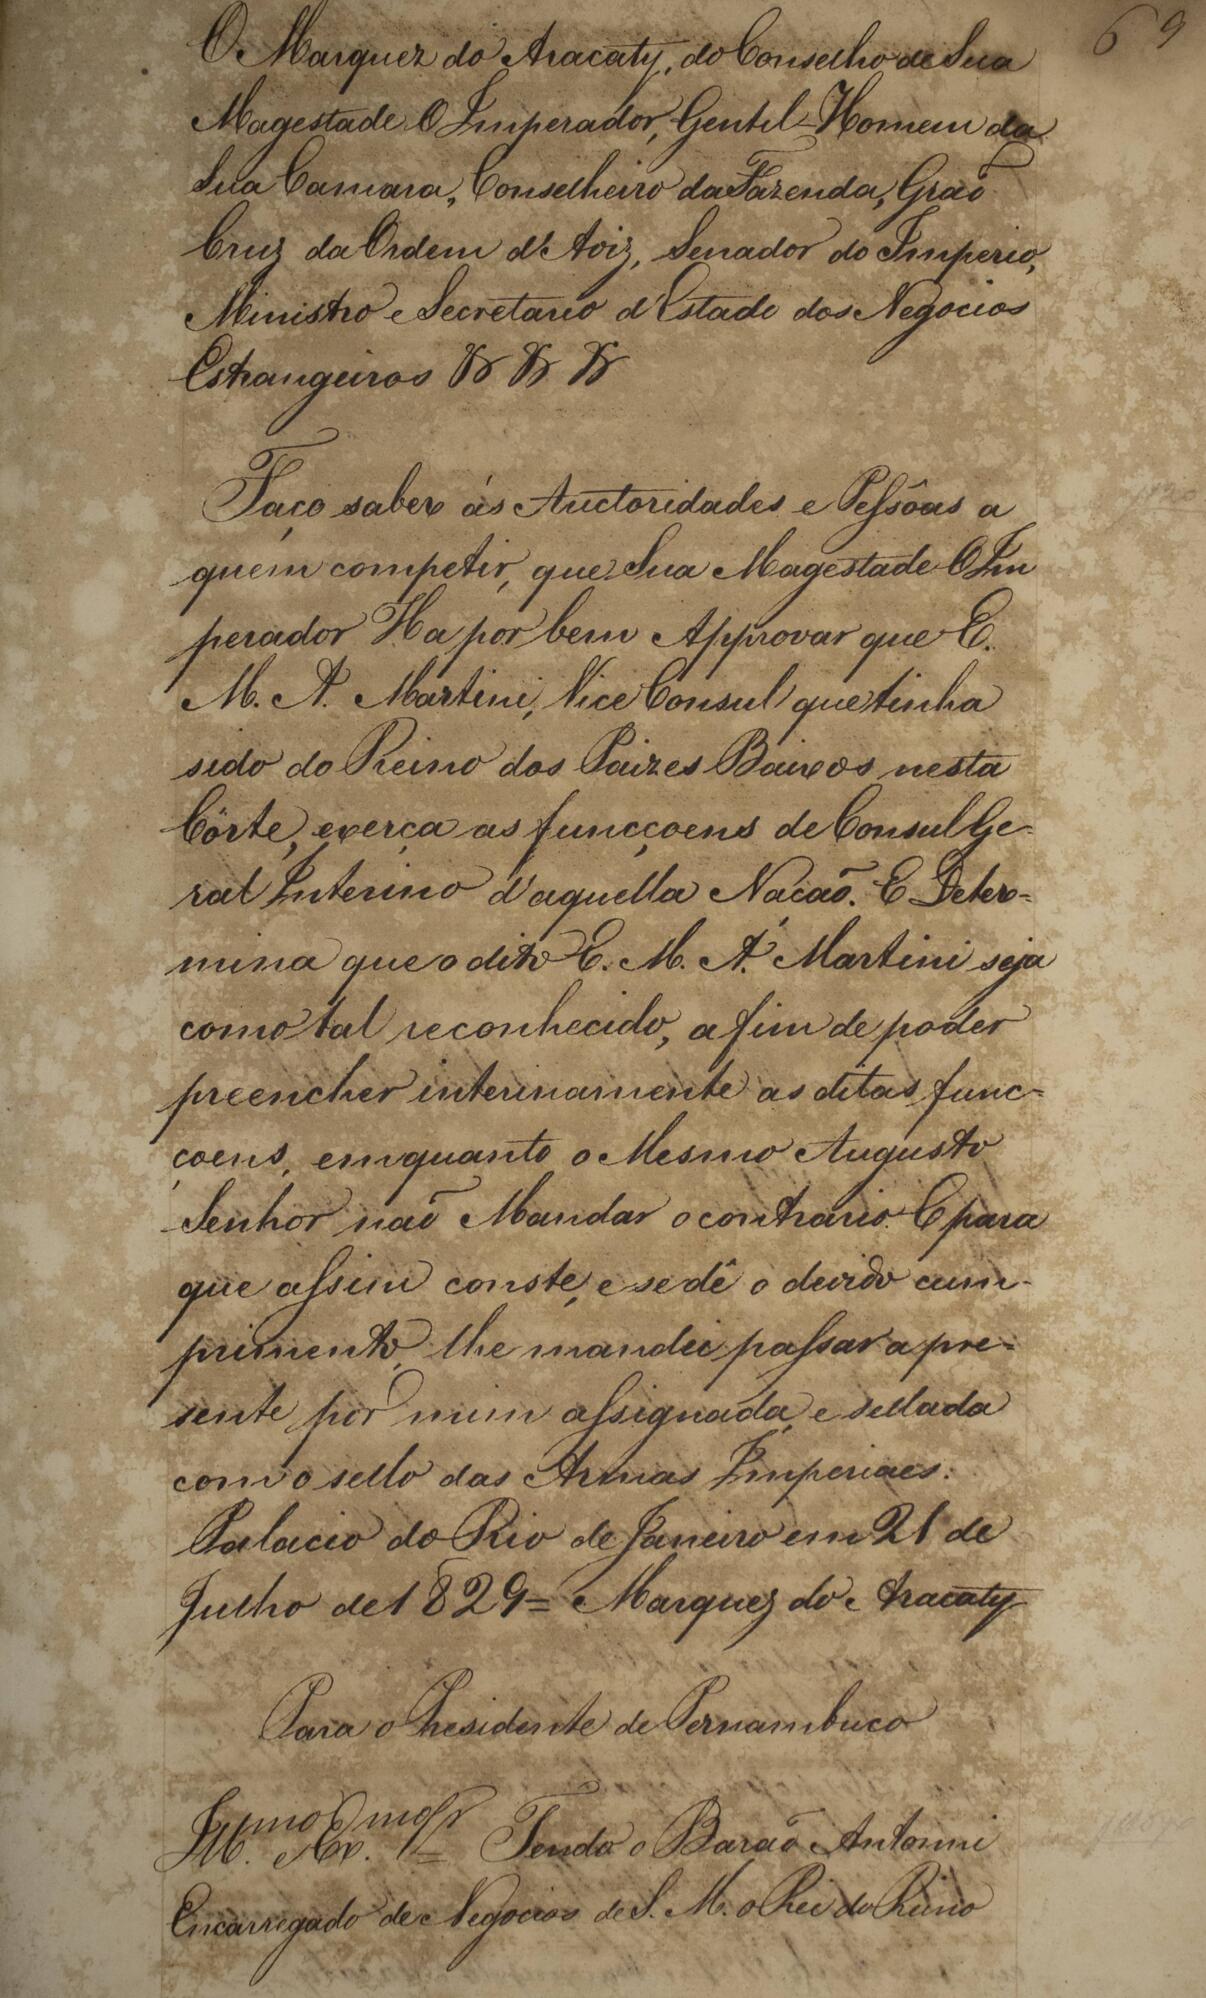 69
O Marquez do Aracaty, do Conselho de Sua
Magestade O Imperador, Gentil-Homem da
Sua Camara, Conselheiro da Fazenda, Graõ
Cruz da Ordem d'Aviz, Senador do Imperio,
Ministro e Secretario d'Estado dos Negocios
Estrangeiros &ª &ª &ª
Faço saber ás Auctoridades e Pessôas a
quem competir, que Sua Magestade O Im
perador Ha por bem Approvar que E.
M. A. Martini, Vice Consul que tinha
sido do Reino dos Paizes Baixos nesta
Côrte, exerça as funcçoens de Consul Ge-
ral Interino d'aquella Nacaõ. E Deter=
mina que o dito E. M. A. Martini seja
como tal reconhecido, a fim de poder
preencher interinamente as ditas func-
çoens, emquanto o Mesmo Augusto
Senhor naõ Mandar o contrario. E para
que assim conste, e se dê o devido cum-
primento, lhe mandei passar a pre-
sente por mim assignada, e sellada
com o sello das Armas Imperiaes.
Palacio do Rio de Janeiro em 21 de
Julho de 1829 = Marquez do Aracaty
Para o Presidente de Pernambuco
Illmo Exmo Sr = Tendo o Baraõ Antonini
Encarregado de Negocios de S. M. o Rei do Reino